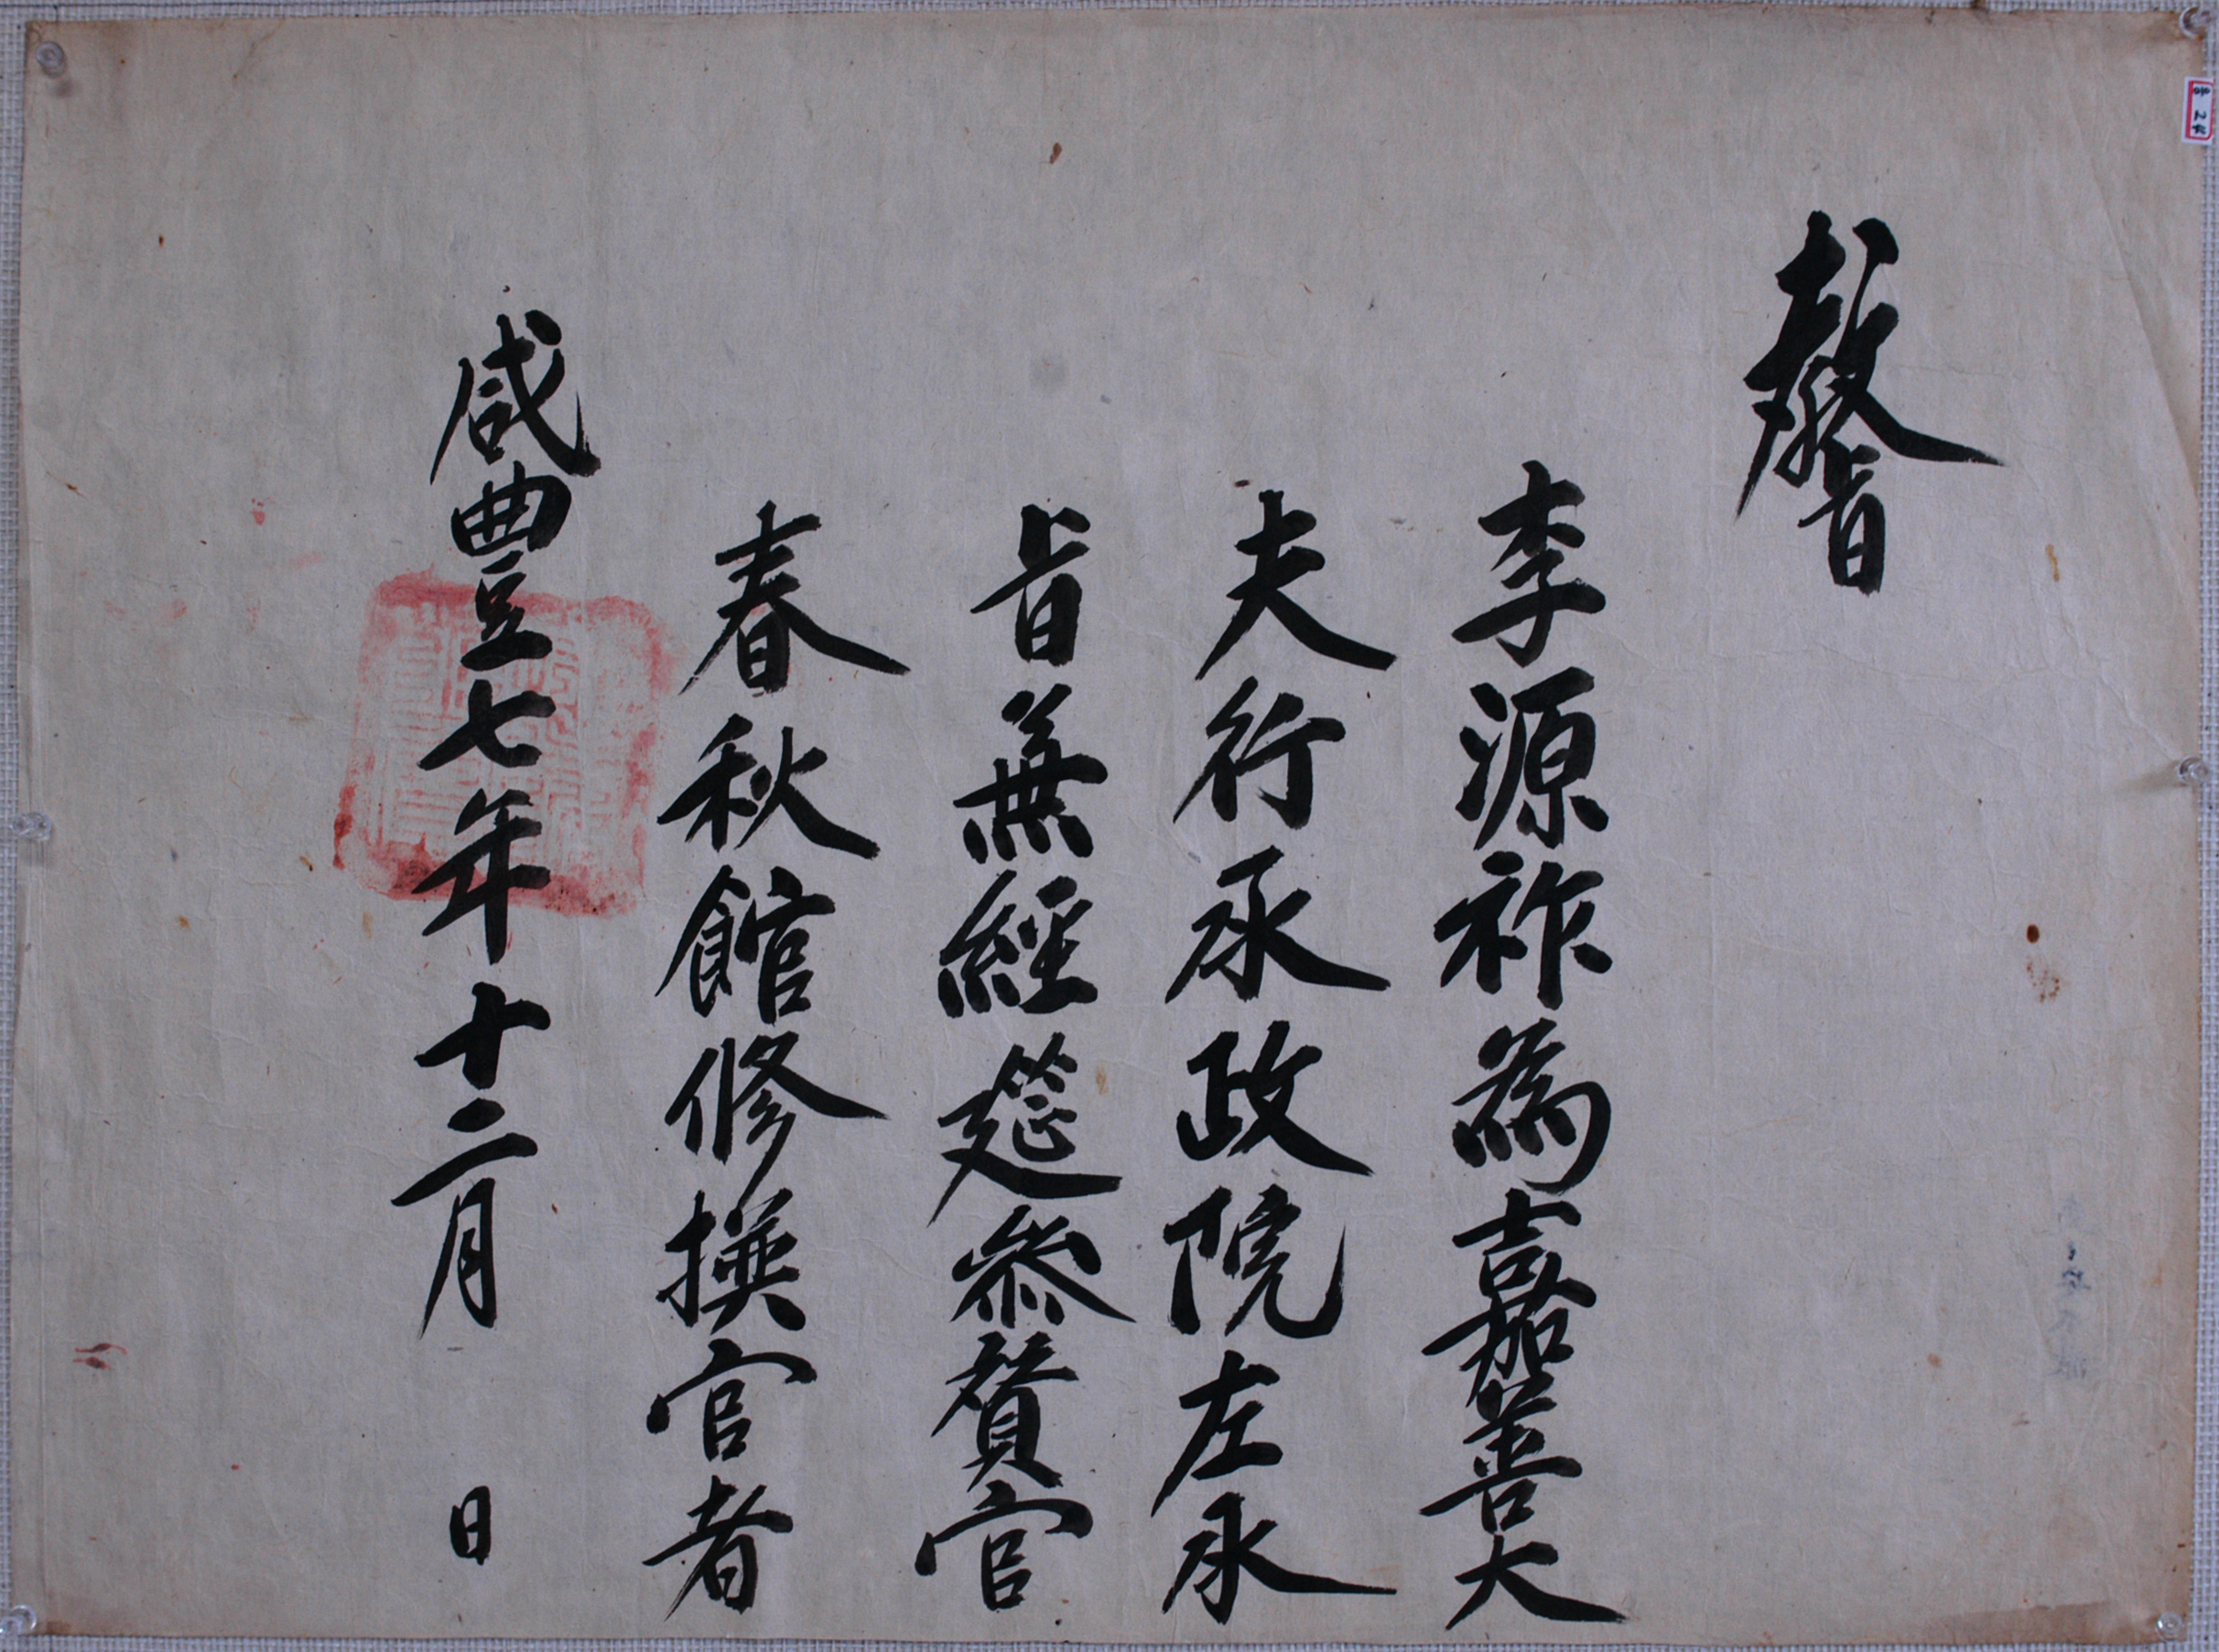 教旨
李源祚為嘉善大
夫行承政院左承
旨兼經筵參贊官
春秋館修撰官者
咸豊七年十二月 日